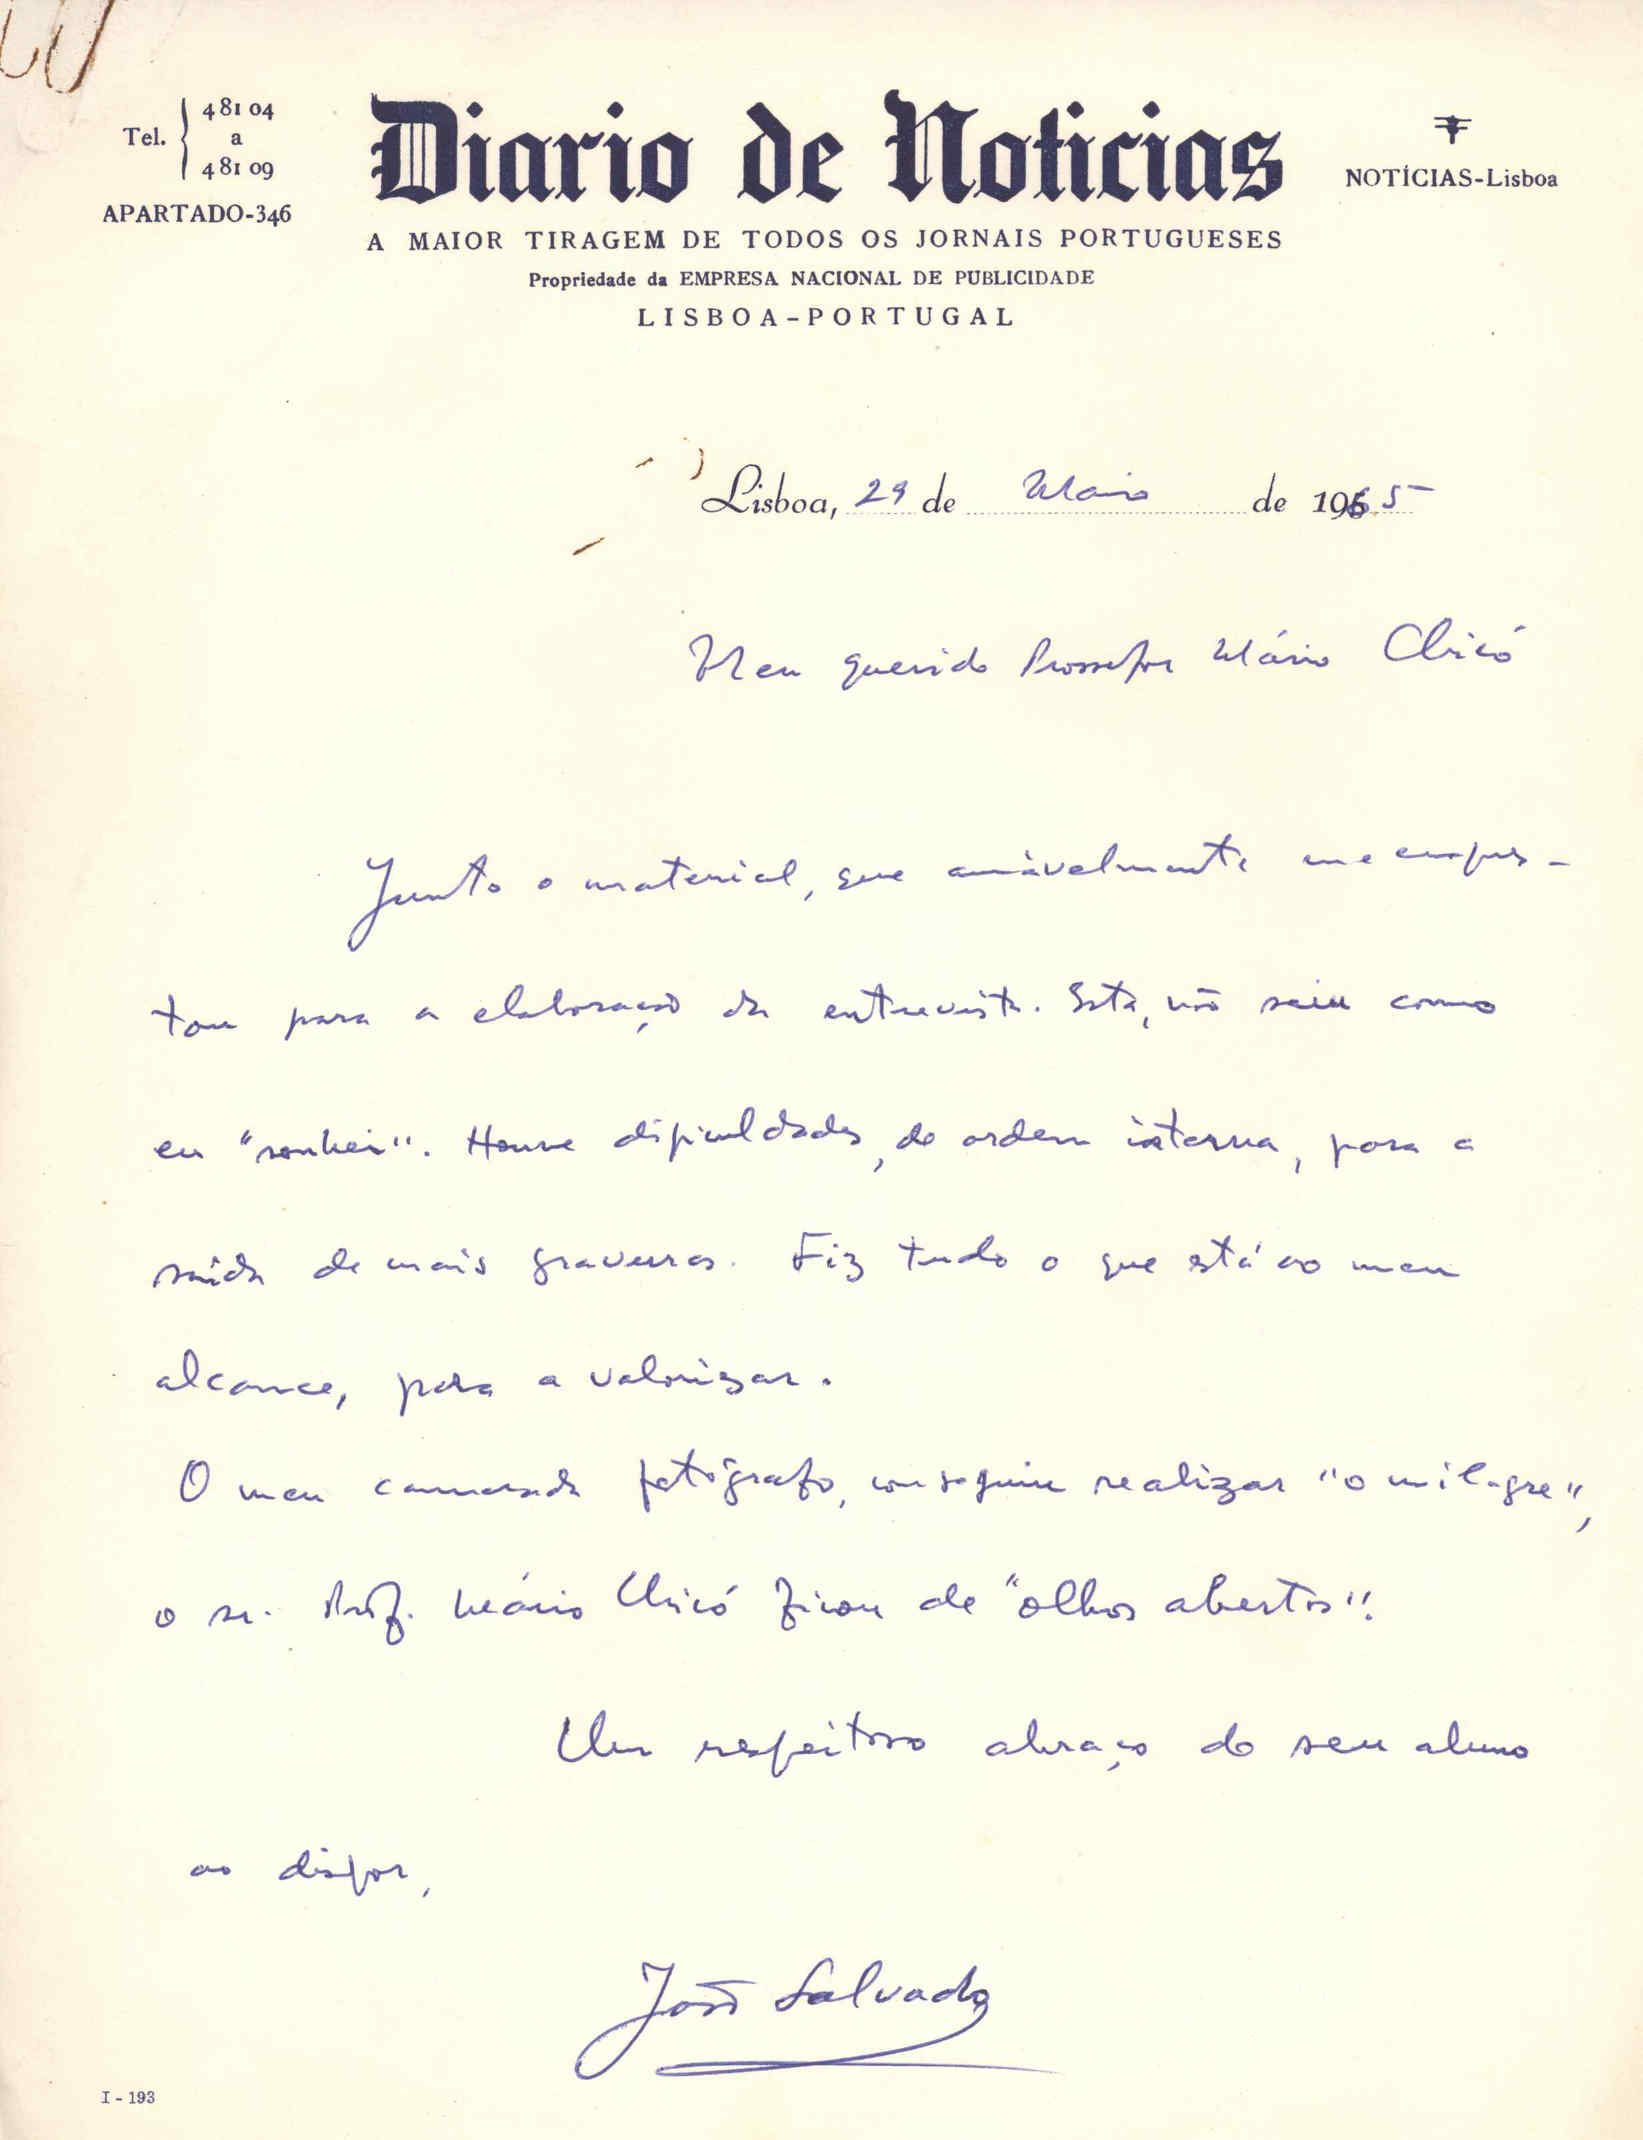 Tel. 481 04
a
481 09
APARTADO-346
Diario de Noticias
NOTÍCIAS-Lisboa
A MAIOR TIRAGEM DE TODOS OS JORNAIS PORTUGUESES
Propriedade da EMPRESA NACIONAL DE PUBLICIDADE
LISBOA-PORTUGAL
Lisboa, 29 de Maio de 1965
Meu querido Prossefor Mário Chicó
Junto o material, que amàvelmente me empres-
tou para a elaboração da entrevista. Esta, não saiu como
eu "sonhei". Houve dificuldades, de ordem interna, para a
saída de mais gravuras. Fiz tudo o que está ao meu
alcance, para a valorizar.
O meu camarada fotógrafo, conseguiu realizar "o milagre",
o sr. Prof. Mário Chicó ficou de "olhos abertos"!
Um respeitoso abraço do seu aluno
ao dispor,
João Salvado
I - 193